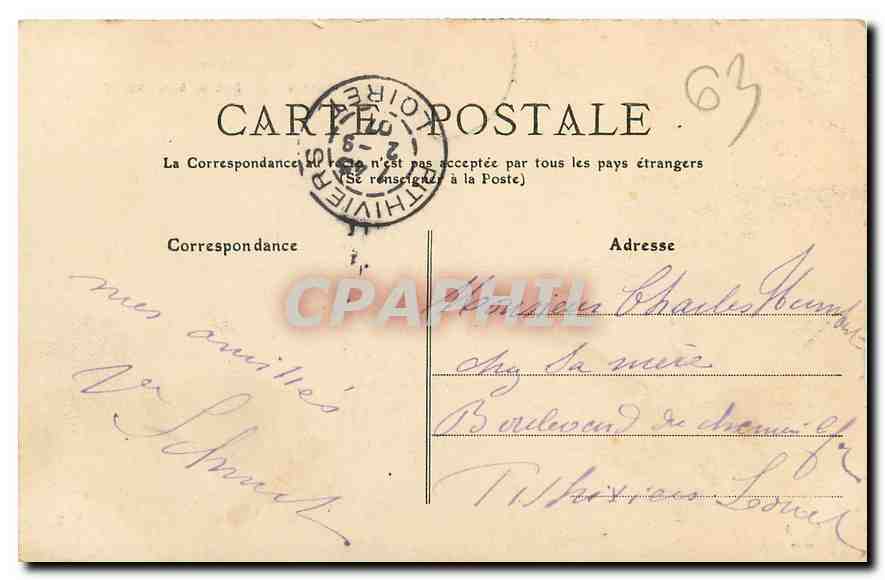 63
CARTE POSTALE
La Correspondance au recto n'est pas acceptée par tous les pays étrangers
(Se renseigner à la Poste)
PITHIVIERS
LOIRET
2 - 9
07
Correspondance
Adresse
mes amitiés
CPAPHIL
Monsieur Charles
chez sa mère
Boulevard du chemin fer
Pithiviers Loiret